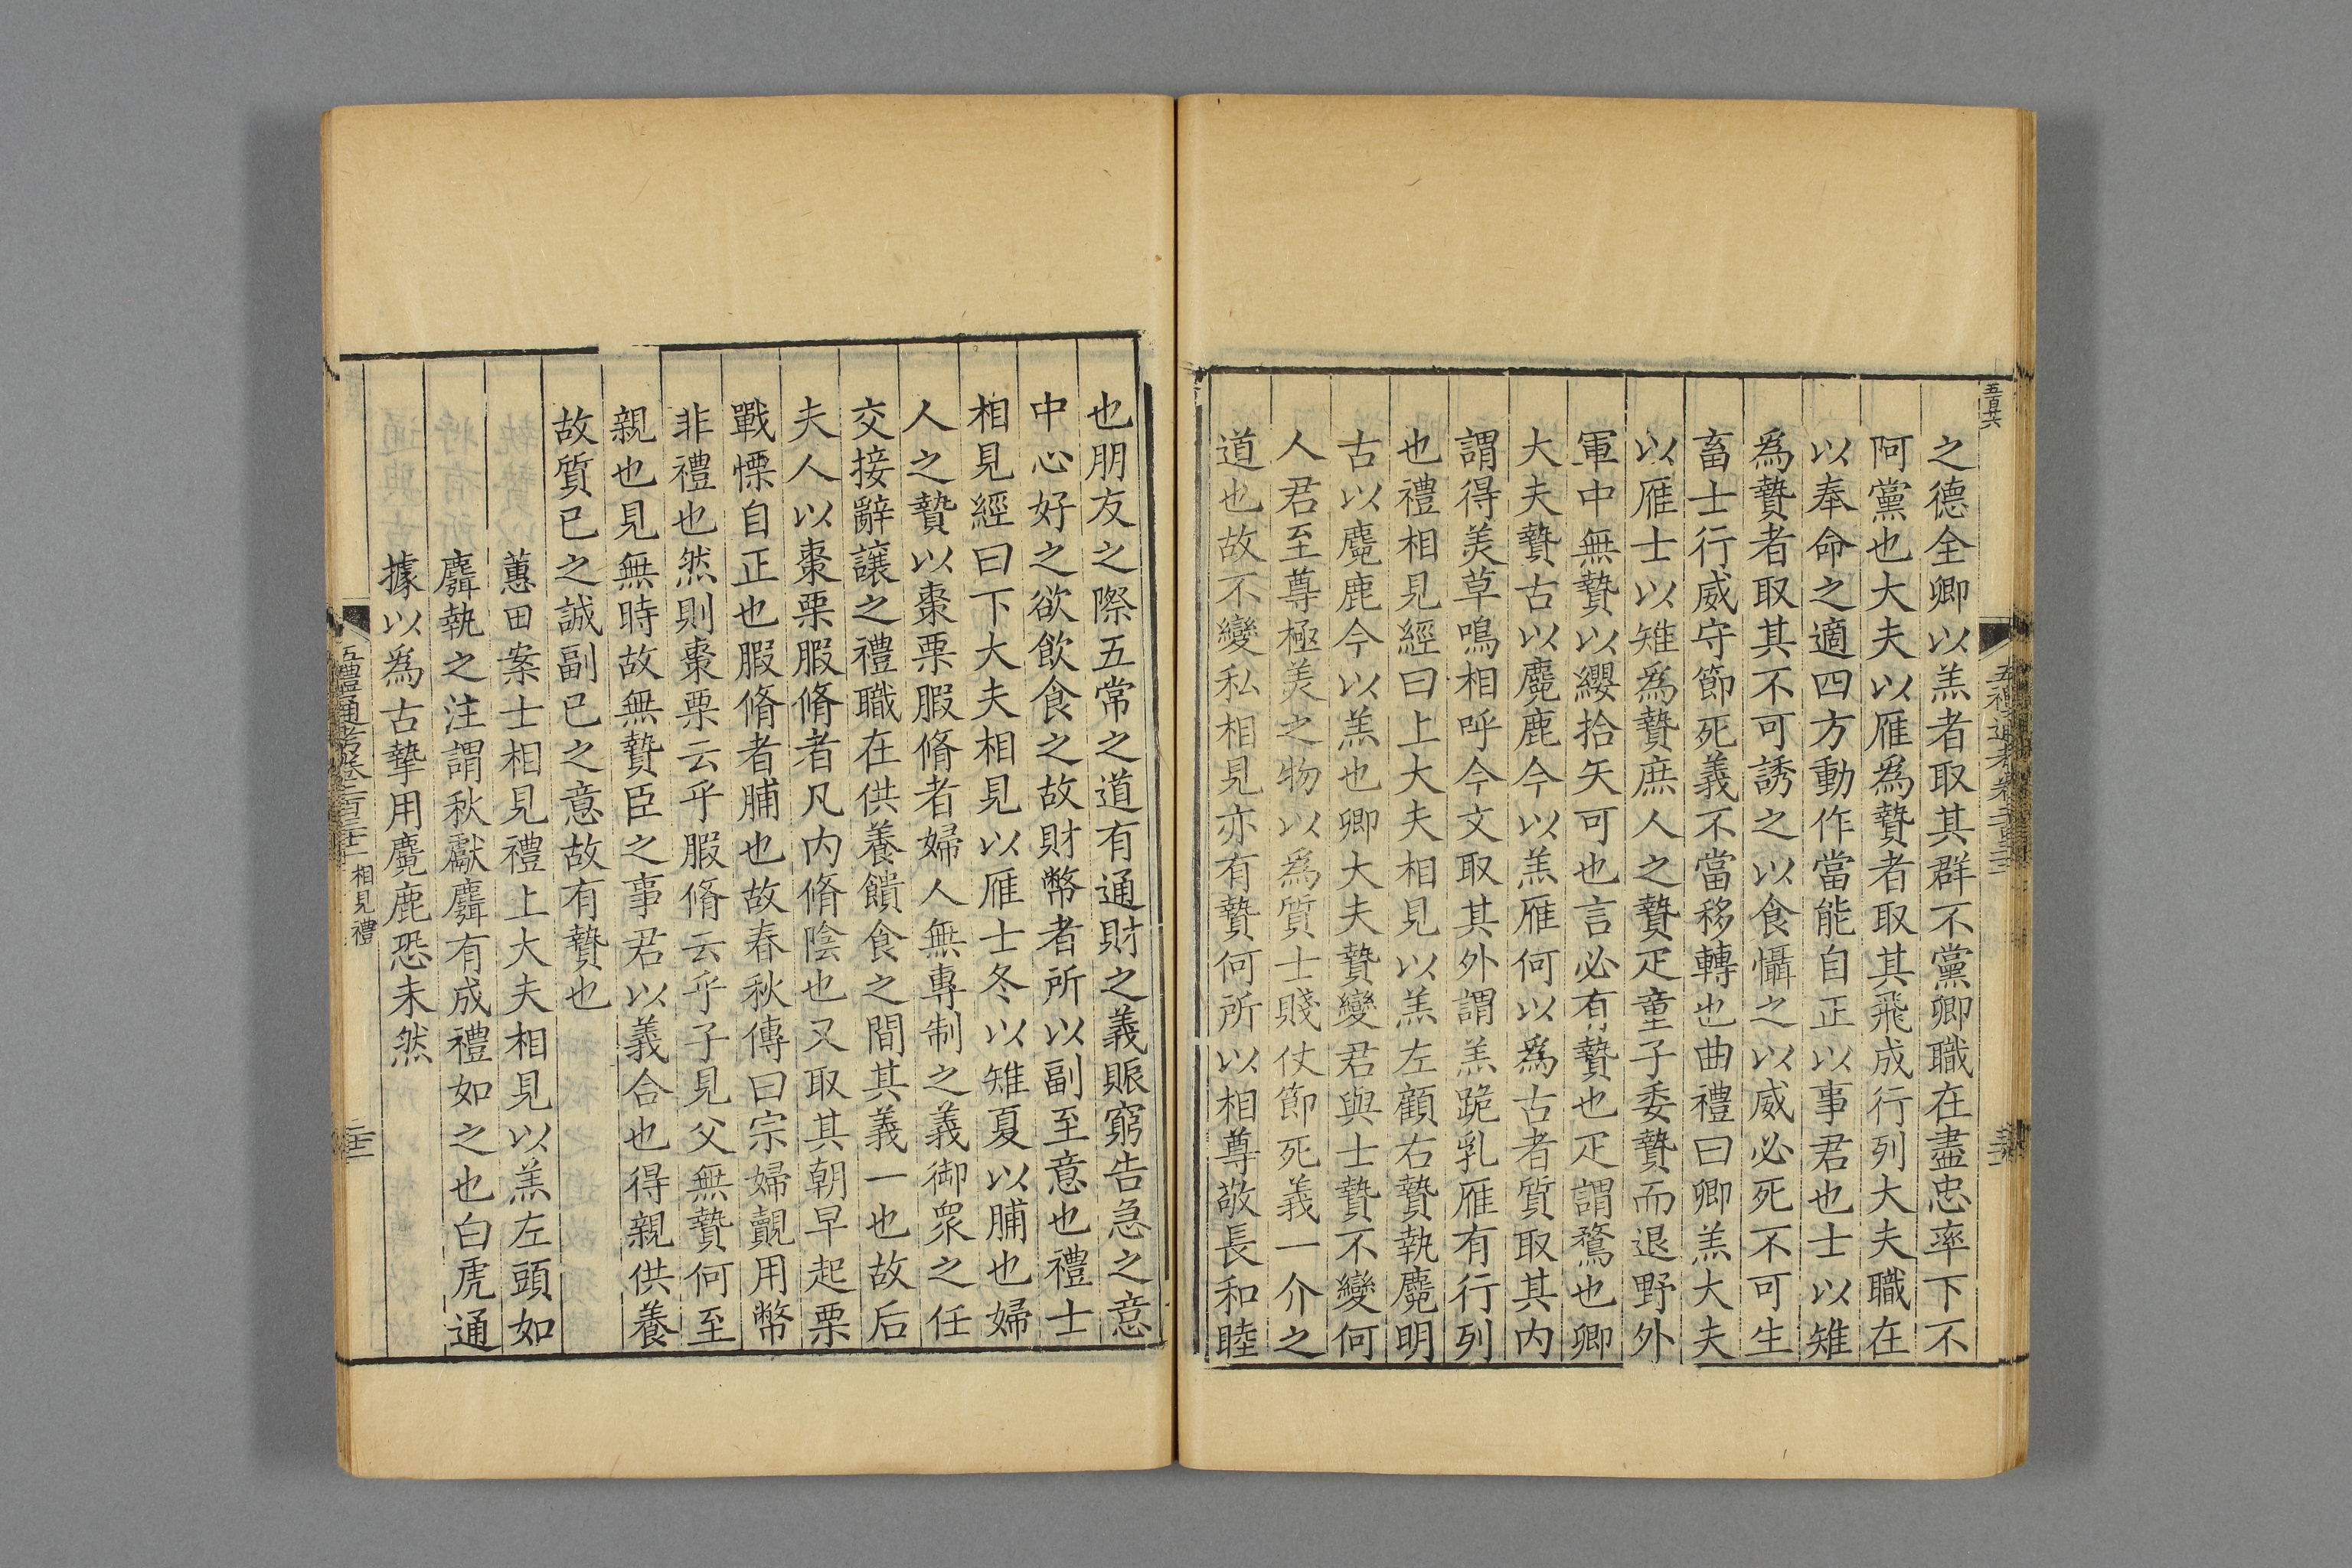 五百共
之德全卿以羔者取其群不黨卿職在盡忠率下不
阿黨也大夫以雁爲贄者取其飛成行列大夫職在
以奉命之適四方動作當能自正以事君也士以雉
爲贄者取其不可誘之以食懾之以威必死不可生
畜士行威守節死義不當移轉也曲禮曰卿羔大夫
以雁士以雉爲贄庶人之贄疋童子委贄而退野外
軍中無贄以纓拾矢可也言必有贄也疋謂鶩也卿
大夫贄古以麑鹿今以羔雁何以爲古者質取其内
謂得羙草鳴相呼今文取其外謂羔跪乳雁有行列
也禮相見經曰上大夫相見以羔左顧右贄執麑明
古以麑鹿今以羔也卿大夫贄變君與士贄不變何
人君至尊極羙之物以爲質士賤仗節死義一介之
道也故不變私相見亦有贄何所以相尊敬長和睦
也朋友之際五常之道有通財之義賑窮告急之意
中心好之欲飲食之故財幣者所以副至意也禮士
相見經曰下大夫相見以雁士冬以雉夏以脯也婦
人之贄以棗栗腶脩者婦人無專制之義御衆之任
交接辭讓之禮職在供養饋食之間其義一也故后
夫人以棗栗腶脩者凡内脩陰也又取其朝早起栗
戰慄自正也腶脩者脯也故春秋傳曰宗婦覿用幣
非禮也然則棗栗云乎腶脩云乎子見父無贄何至
親也見無時故無贄臣之事君以義合也得親供養
故質已之誠副已之意故有贄也
蕙田案士相見禮上大夫相見以羔左頭如
麛執之注謂秋獻麛有成禮如之也白虎通
據以爲古摯用麑鹿恐未然
五禮通考卷二百三十一 相見禮